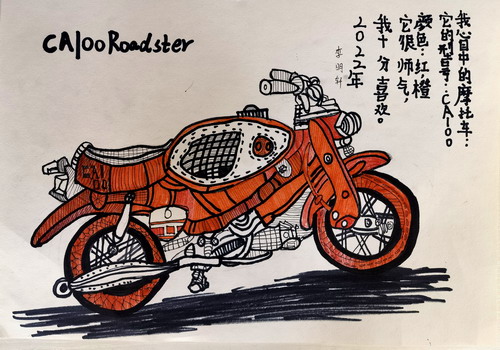 CA100 Roadster
我心目中的摩托车:
它的型号:CA100
颜色:红,橙
它很师气,
我十分喜欢。
2022年
李明轩